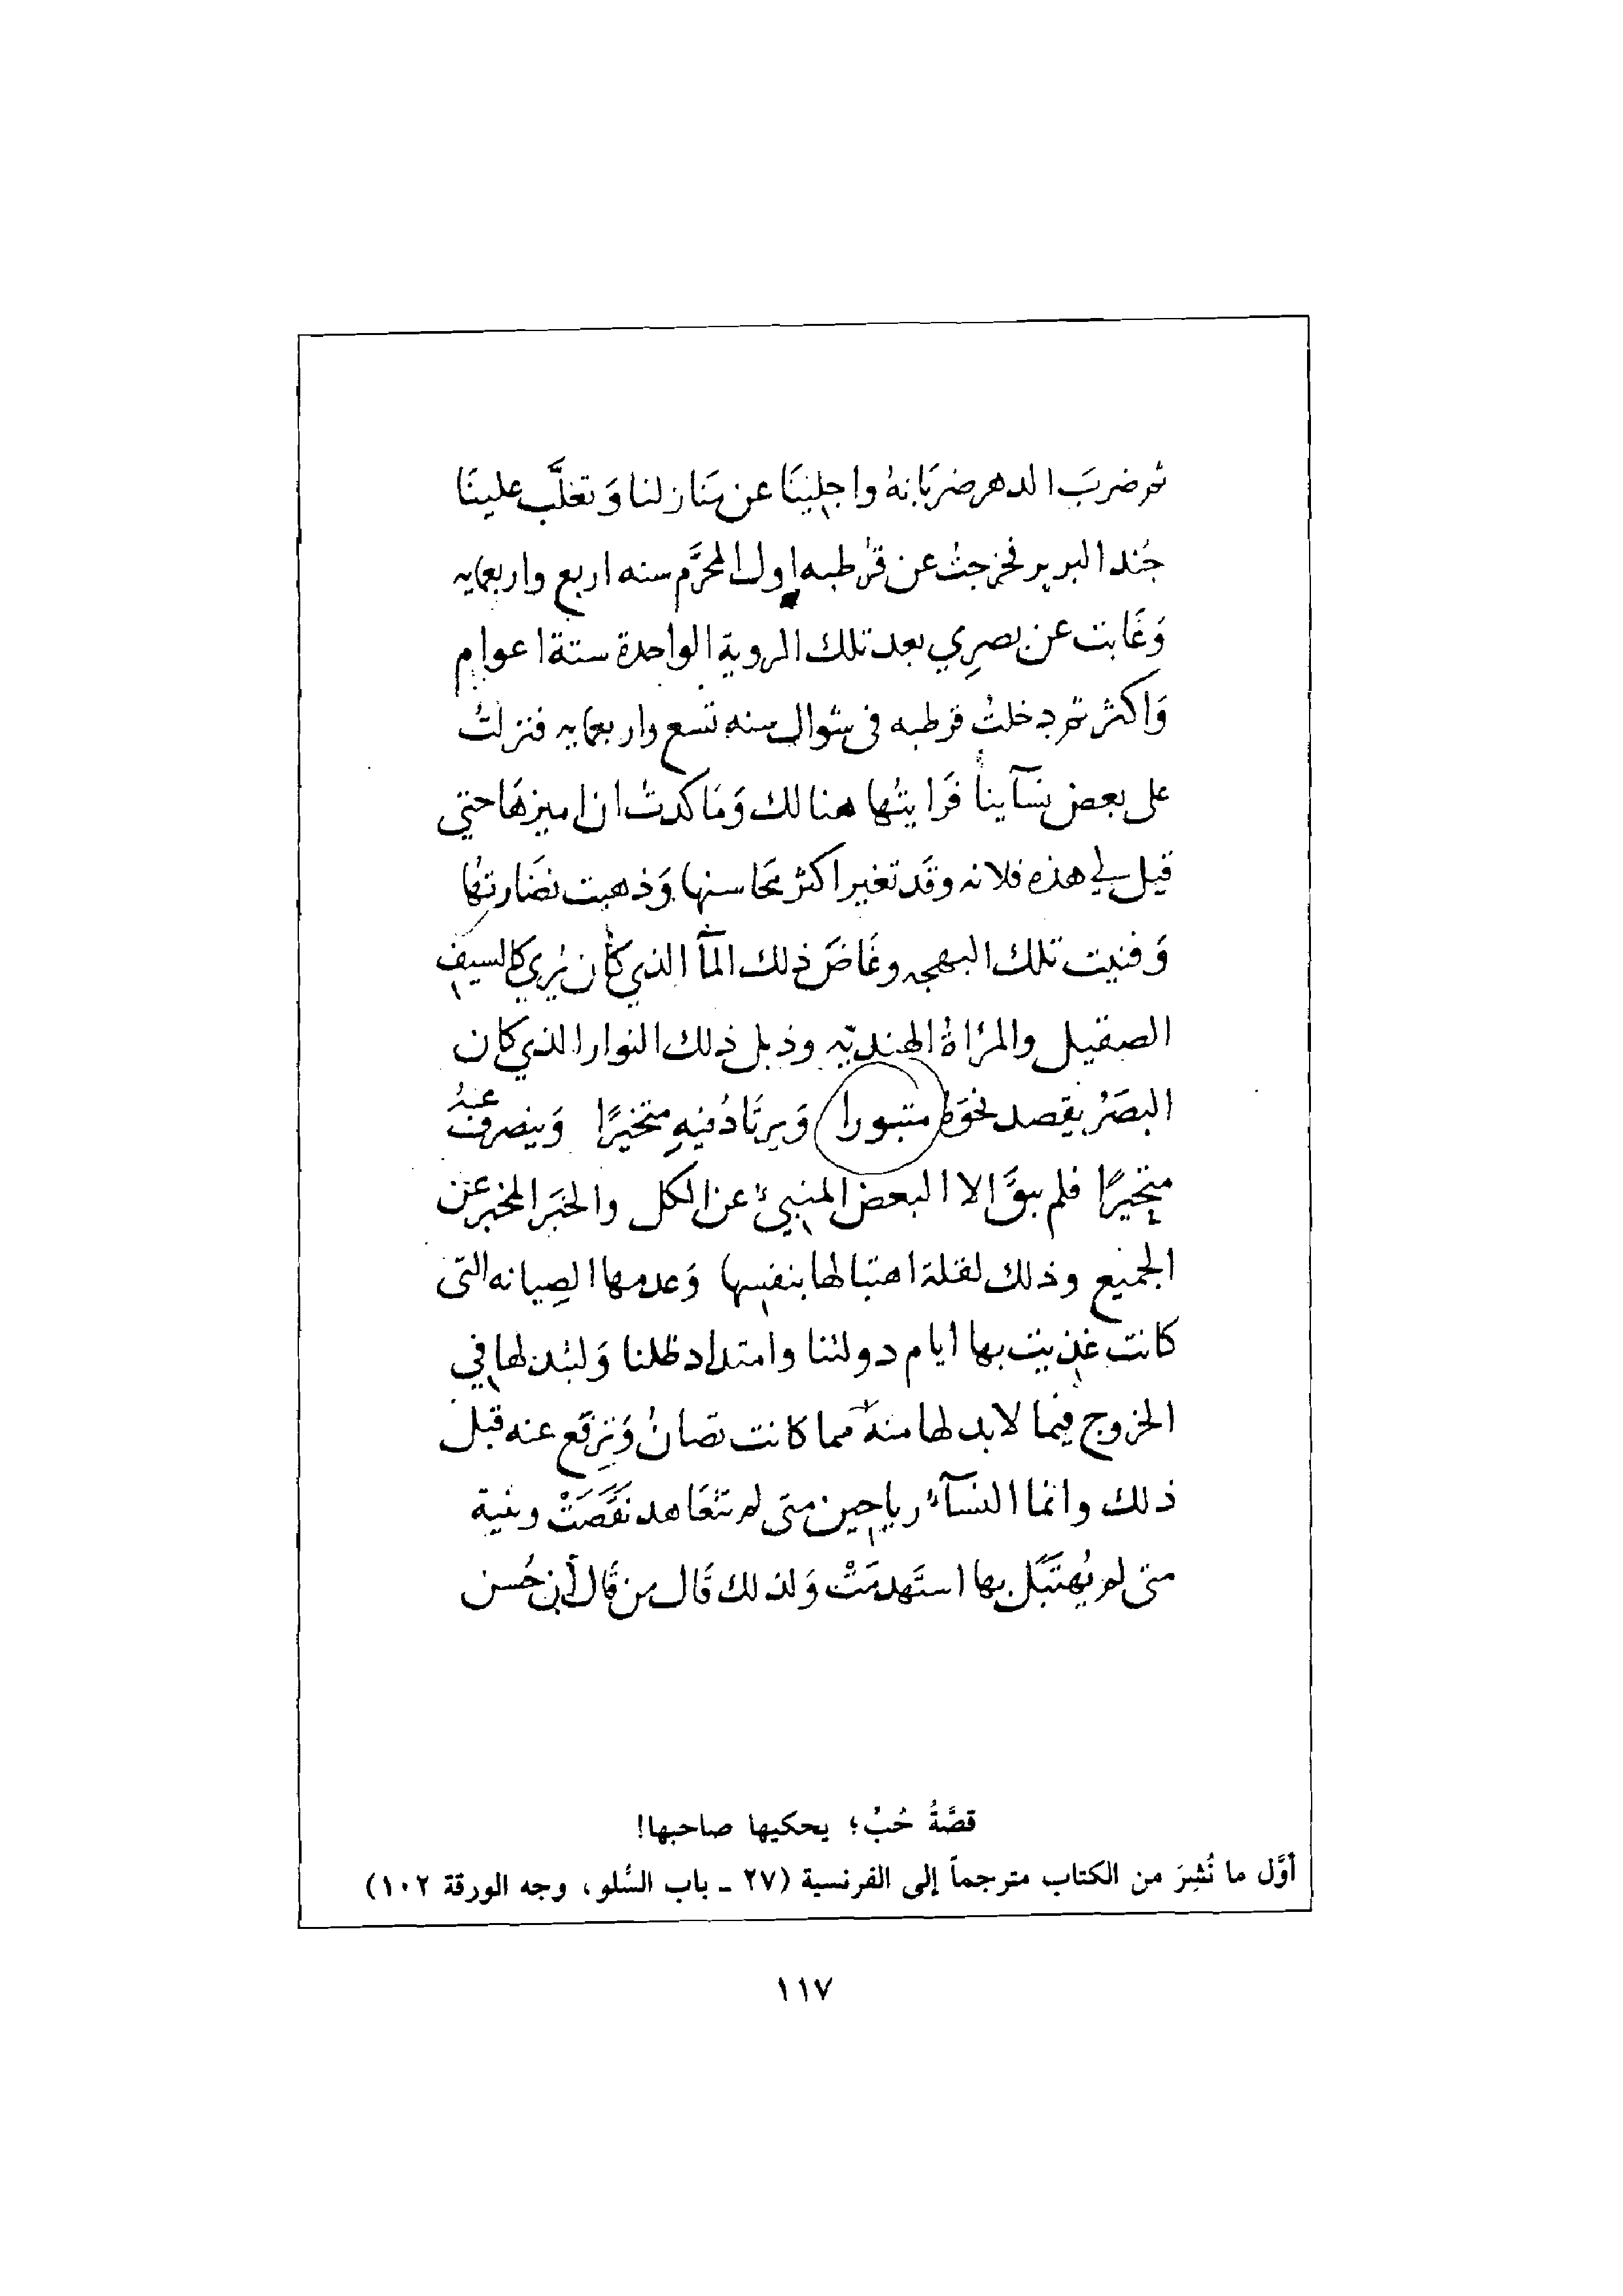 ثم ضربَ الدهر ضرَبَانهُ واجلينَا عن مَنَازلنا وَتغلَّب علينَا
جُند البربر فخرجتُ عن قُرطبه اول المحرَّم سنه اربع واربعمايه
وَغَابت عن بصرِي بعد تلك الروية الواحدة ستة اعوام
وَاكثر ثم دخلتُ قرطبه فى شوال سنه تسع واربعمايه فنزلتُ
على بعض نسآينا فَرَايتُها هنالك وَمَا كدتُ ان اميزهَا حتي
قيل لي هذه فلانه وقَد تغير اكثر محَاسنها وَذهبت نضَارتها
وَفنيت تلك البهجه وغَاضَ ذلك المآ الذي كان يُري كالسيف
الصقيل والمرَاةُ الهنديّه وذبل ذلك النوار الذي كان
البصَرُ يقصد نحوَهُ متبورا وَيرتَادُ فيهِ متخيرًا وَينصرفُ عنهُ
متحيرًا فلم يبقَ الا البعض المنبيُ عن الكل والخبَر المخبر عن
الجميع وذلك لقلة اهتبالها بنفسها وَعدمها الصِيانه التى
كانت غذيت بها ايام دولتنا وامتداد ظلنا وَلتبذلها في
الخروج فيما لابد لها منه مما كانت تصانُ وَترفَع عنه قبل
ذلك وانما النسآءُ رياحين متى لم تتعَاهد نقَصَتْ وبنية
متى لم يُهتَبَل بها استَهدمَتْ وَلذلك قَال من قَال أن حُسن
قصَّةُ حُبّ؛ يحكيها صاحبها!
أوَّل ما نُشِرَ من الكتاب مترجماً إلى الفرنسية (٢٧ ـ باب السُّلو، وجه الورقة ١٠٢)
١١٧